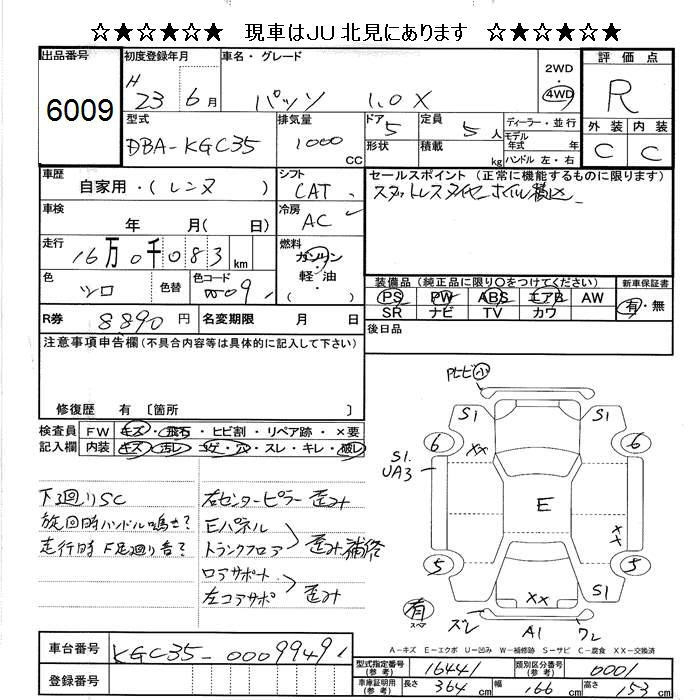 ☆★☆★☆★ 現車はJU北見にあります ☆★☆★☆★
出品番号 初度登録年月 車名・グレード 評価点
6009 H 23 6月 パッソ 1.0X 2WD・4WD R
型式 排気量 ドア 5 定員 5人 ディーラー・並行 外装 内装
DBA-KGC35 1000 CC 形状 積載 kg モデル年式 年 ハンドル 左・右 C C
車歴 シフト セールスポイント (正常に機能するものに限ります)
自家用・(レンタ) CAT スタットレスタイヤ ホイル積込
車検 冷房
年 月( 日) AC
走行 燃料
16万0千083km ガソリン・軽・油・( )
色 色替 色コード 装備品(純正品に限り○をつけてください) 新車保証書
シロ W09 PS PW ABS エアB AW 有・無
SR ナビ TV カワ
R券 8890円 名変期限 月 日 後日品
注意事項申告欄(不具合内容等は具体的に記入して下さい)
修復歴 有 〔箇所 〕
検査員 FW キズ・飛石・ヒビ割・リペア跡・×要
記入欄 内装 キズ・汚レ・コゲ・穴・スレ・キレ・破レ
下廻りSC
旋回時ハンドル鳴き?
走行時F足廻り音?
右センターピラー 歪み
Eパネル
トランクフロア 歪み補修
ロアサポート
左コアサポ 歪み
ヒビ小
S1 S1
6 XX 6
S1
UA3
E
XX
5 5
S1
XX
有 スペア
ズレ A1 ワレ
A-キズ E-エクボ U-凹み W-補修跡 S-サビ C-腐食 XX-交換済
車台番号 KGC35-0009949
登録番号
型式指定番号(参考) 16441 類別区分番号(参考) 0001
車庫証明用(参考) 長さ 364cm 幅 166cm 高さ 153cm